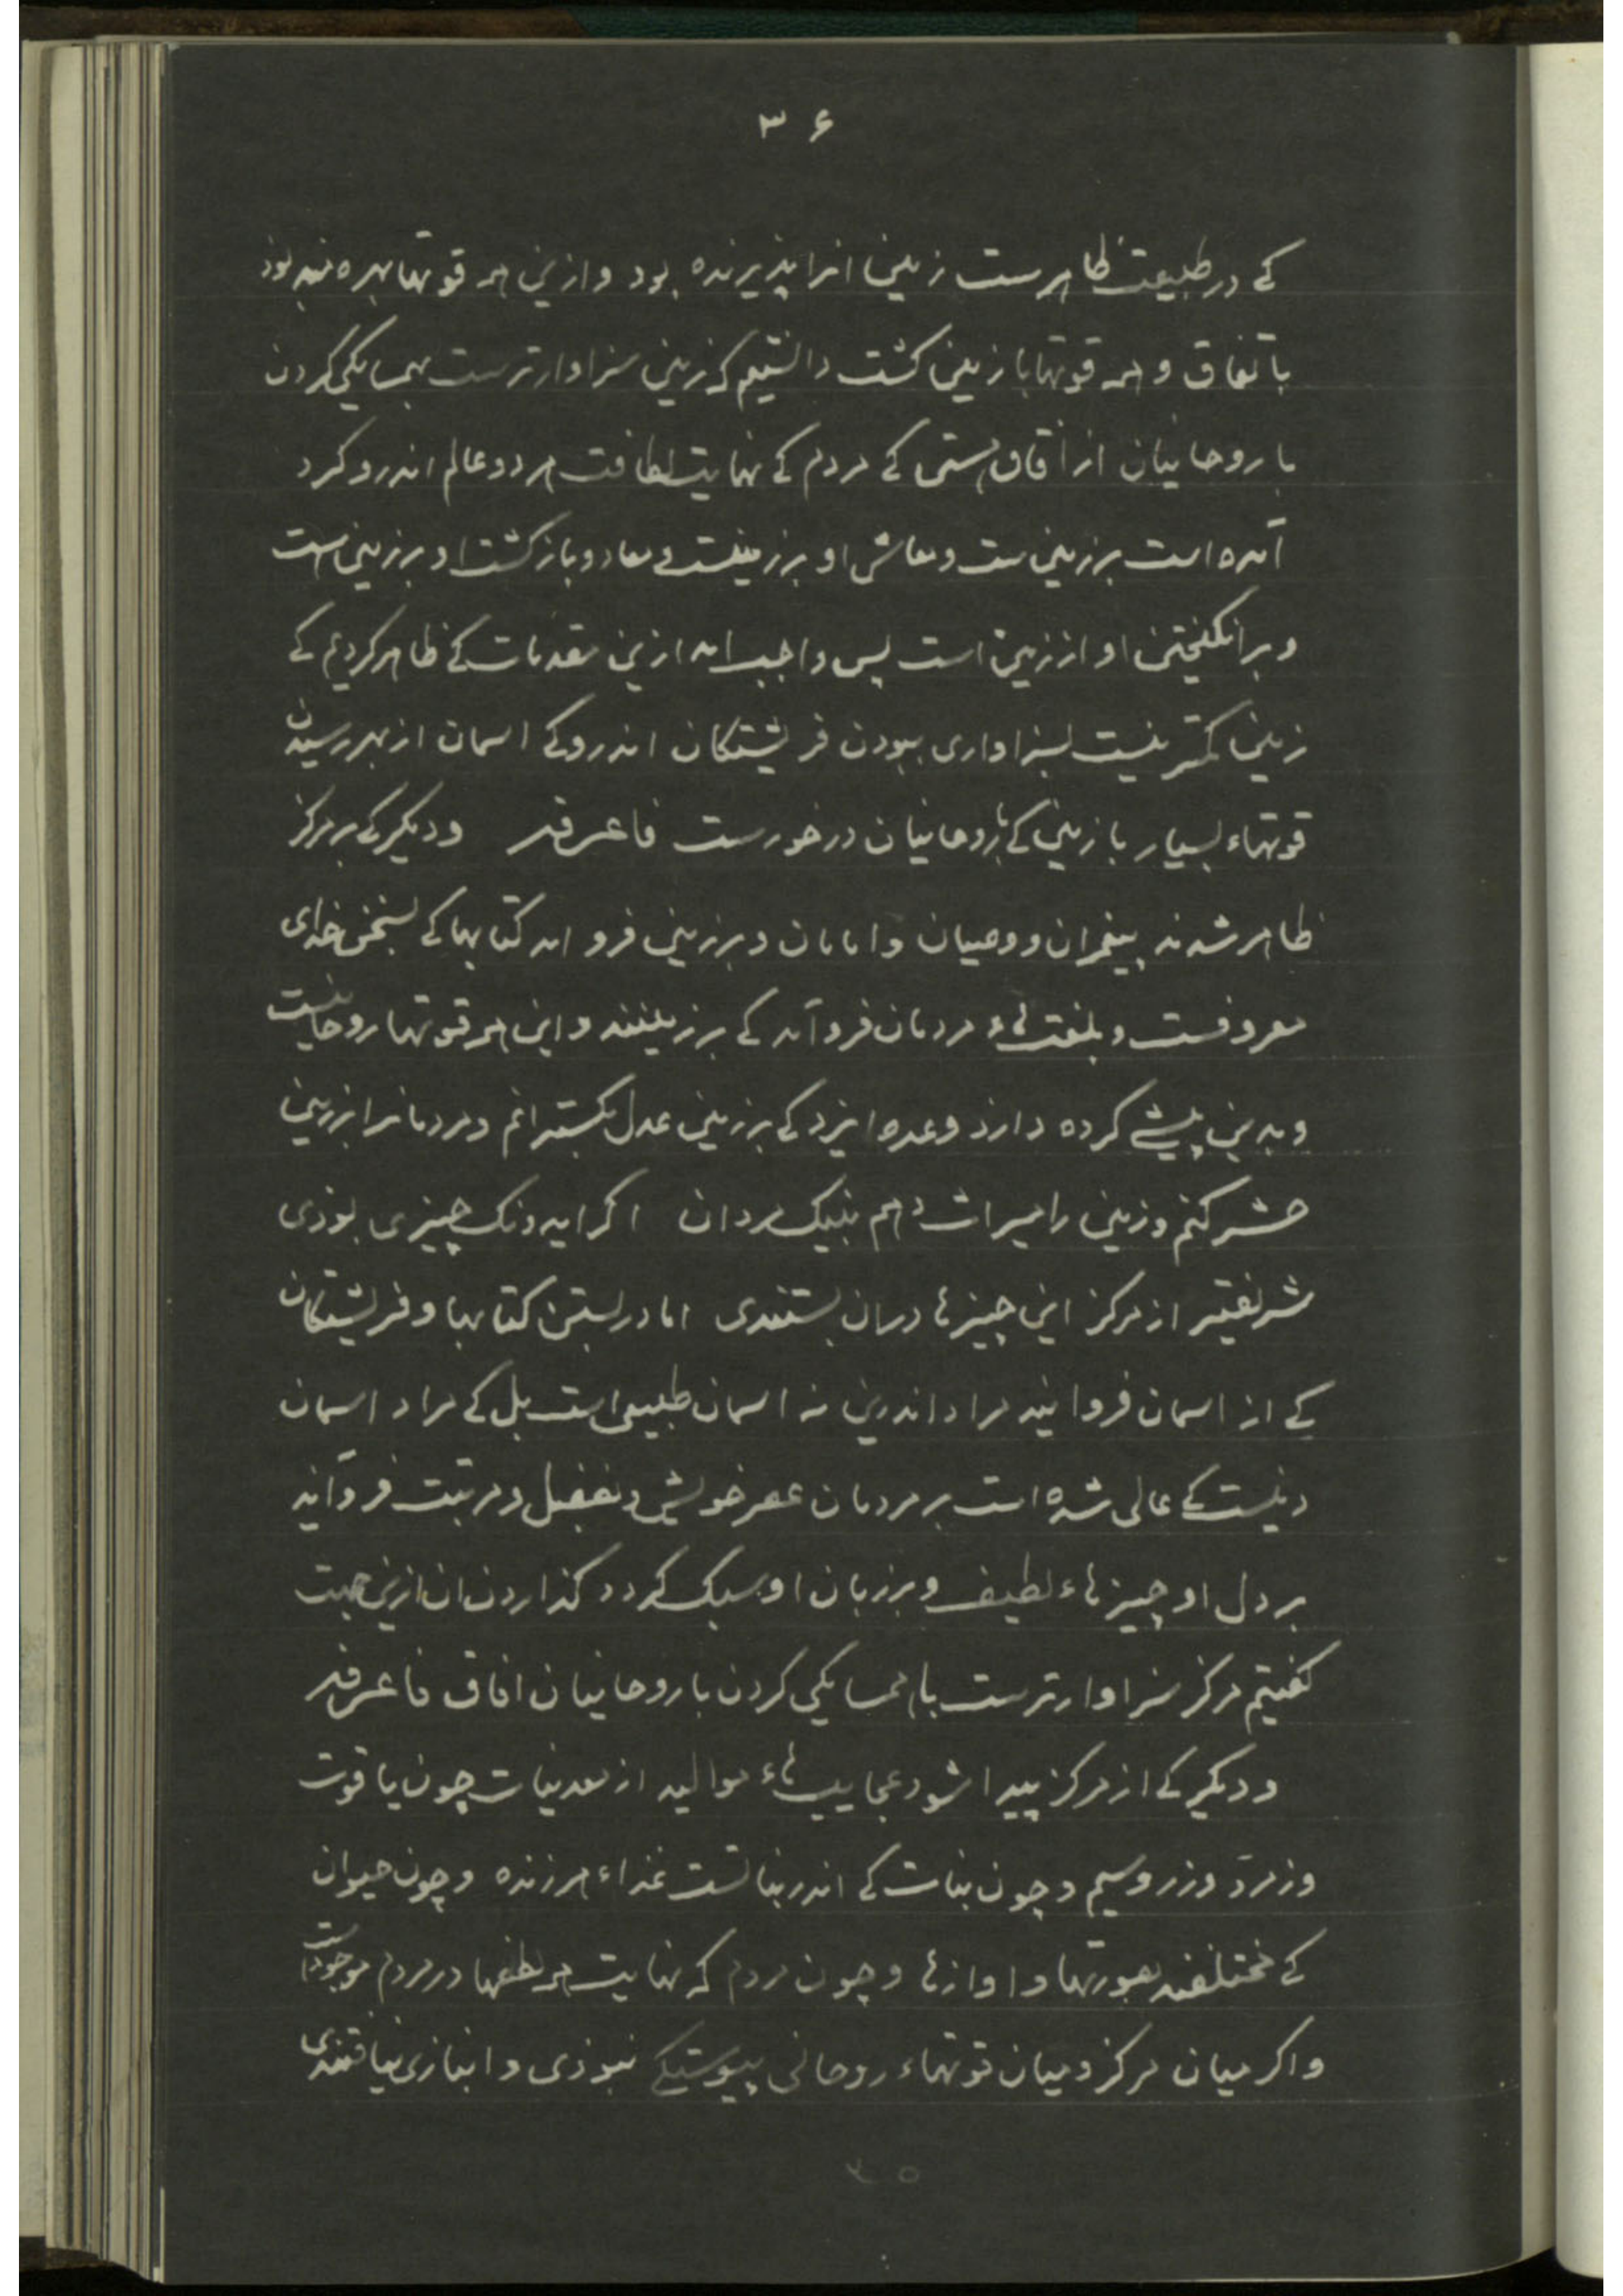 ۳۶
کے در طبیعت ظاهرست زمین انرا پذیرنده بود وازین همه قوتها بهره
باتفاق و همه قوتها با زمین کشت دانستیم که زمین سزاوارترست بهمسایکی کردن
با روحانیان از آفاق هستی کے مردم کے نهایت لطافت هر دو عالم اندرو کرد
آمده است برزمین ست ومعاش او برزمینست ومعاد و بازکشت او برزمین است
وبرانکیختن او از زمین است پس واجب امد ازین مقدمات کے ظاهر کردیم کے
زمین کمتر نیست بسزاواری ببودن فریشتکان اندرو کے اسمان از بهر رسیدن
قوتهاء بسیار با زمین کے با روحانیان درخورست فاعرفه ودیکر کے بر مرکز
ظاهر شدند پیغمبران و وصیان وامامان وبرزمین فرو امد کتابها کے بسخن خدای
معروفست وبلغت‌هاء مردمان فرو آمد کے برزمینند واین همه قوتها روحانیست
وبدین پیشے کرده دارذ وعده ایزد کے برزمین عدل بکسترانم ومردمانرا از زمین
حشر کنم وزمین را میراث دهم بنیک مردان اکر ایدونک چیزی بوذی
شریفتر از مرکز این چیزها دران بستندی اما در بستن کتابها وفریشتکان
کے از اسمان فروایند مراد اندرین نه اسمان طبیعی است بل کے مراد اسمان
دینیست کے عالی شده است بر مردمان عصر خویش وبفضل ومرتبت فروآید
بر دل او چیزهاء لطیف وبرزبان او سبک کردد کذاردن ان ازین جهت
کفتیم مرکز سزاوارترست باهمسایکی کردن با روحانیان افاق فاعرفه
ودیکر کے از مرکز پیدا شود عجایب‌هاء موالید از معدنیات چون یاقوت
وزمرد وزر وسیم وچون نبات کے اندر نباتست غذاء هر زنده وچون حیوان
کے مختلفند بصورتها واوازها وچون مردم که نهایت همه لطفها در مردم موجودست
واکر میان مرکز ومیان قوتهاء روحانی پیوستکے نبوذی وانبازی نیافتندی
۳۵